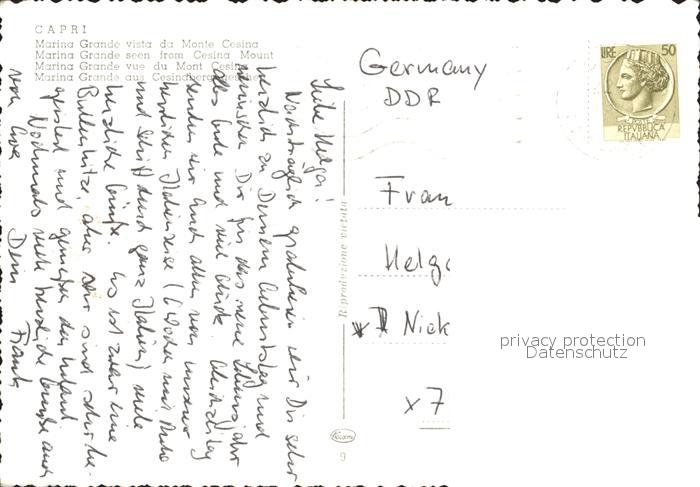 CAPRI
Marina Grande vista da Monte Cesina
Marina Grande seen from Cesina Mount
Marina Grande vue du Mont Cesina
Marina Grande aus Cesinaberg gesehen
Liebe Helga!
Nachträglich gratulieren wir Dir sehr
herzlich zu Deinem Geburtstag und
wünschen Dir für das neue Lebensjahr
alles Gute und viel Glück. Gleichzeitig
senden wir Euch allen von unserer
herrlichen Italienreise (6 Wochen mit Auto
und Schiff durch ganz Italien) viele
herzliche Grüße. Es ist zwar eine
Bullenhitze, aber wir sind schon
und genießen den Urlaub
Nochmals viele herzliche Grüße auch
von
Dein Frank
Germany
DDR
Frau
Helga
Nick
x 7
Riproduzione vietata
9
LIRE 50
REPVBBLICA
ITALIANA
privacy protection
Datenschutz